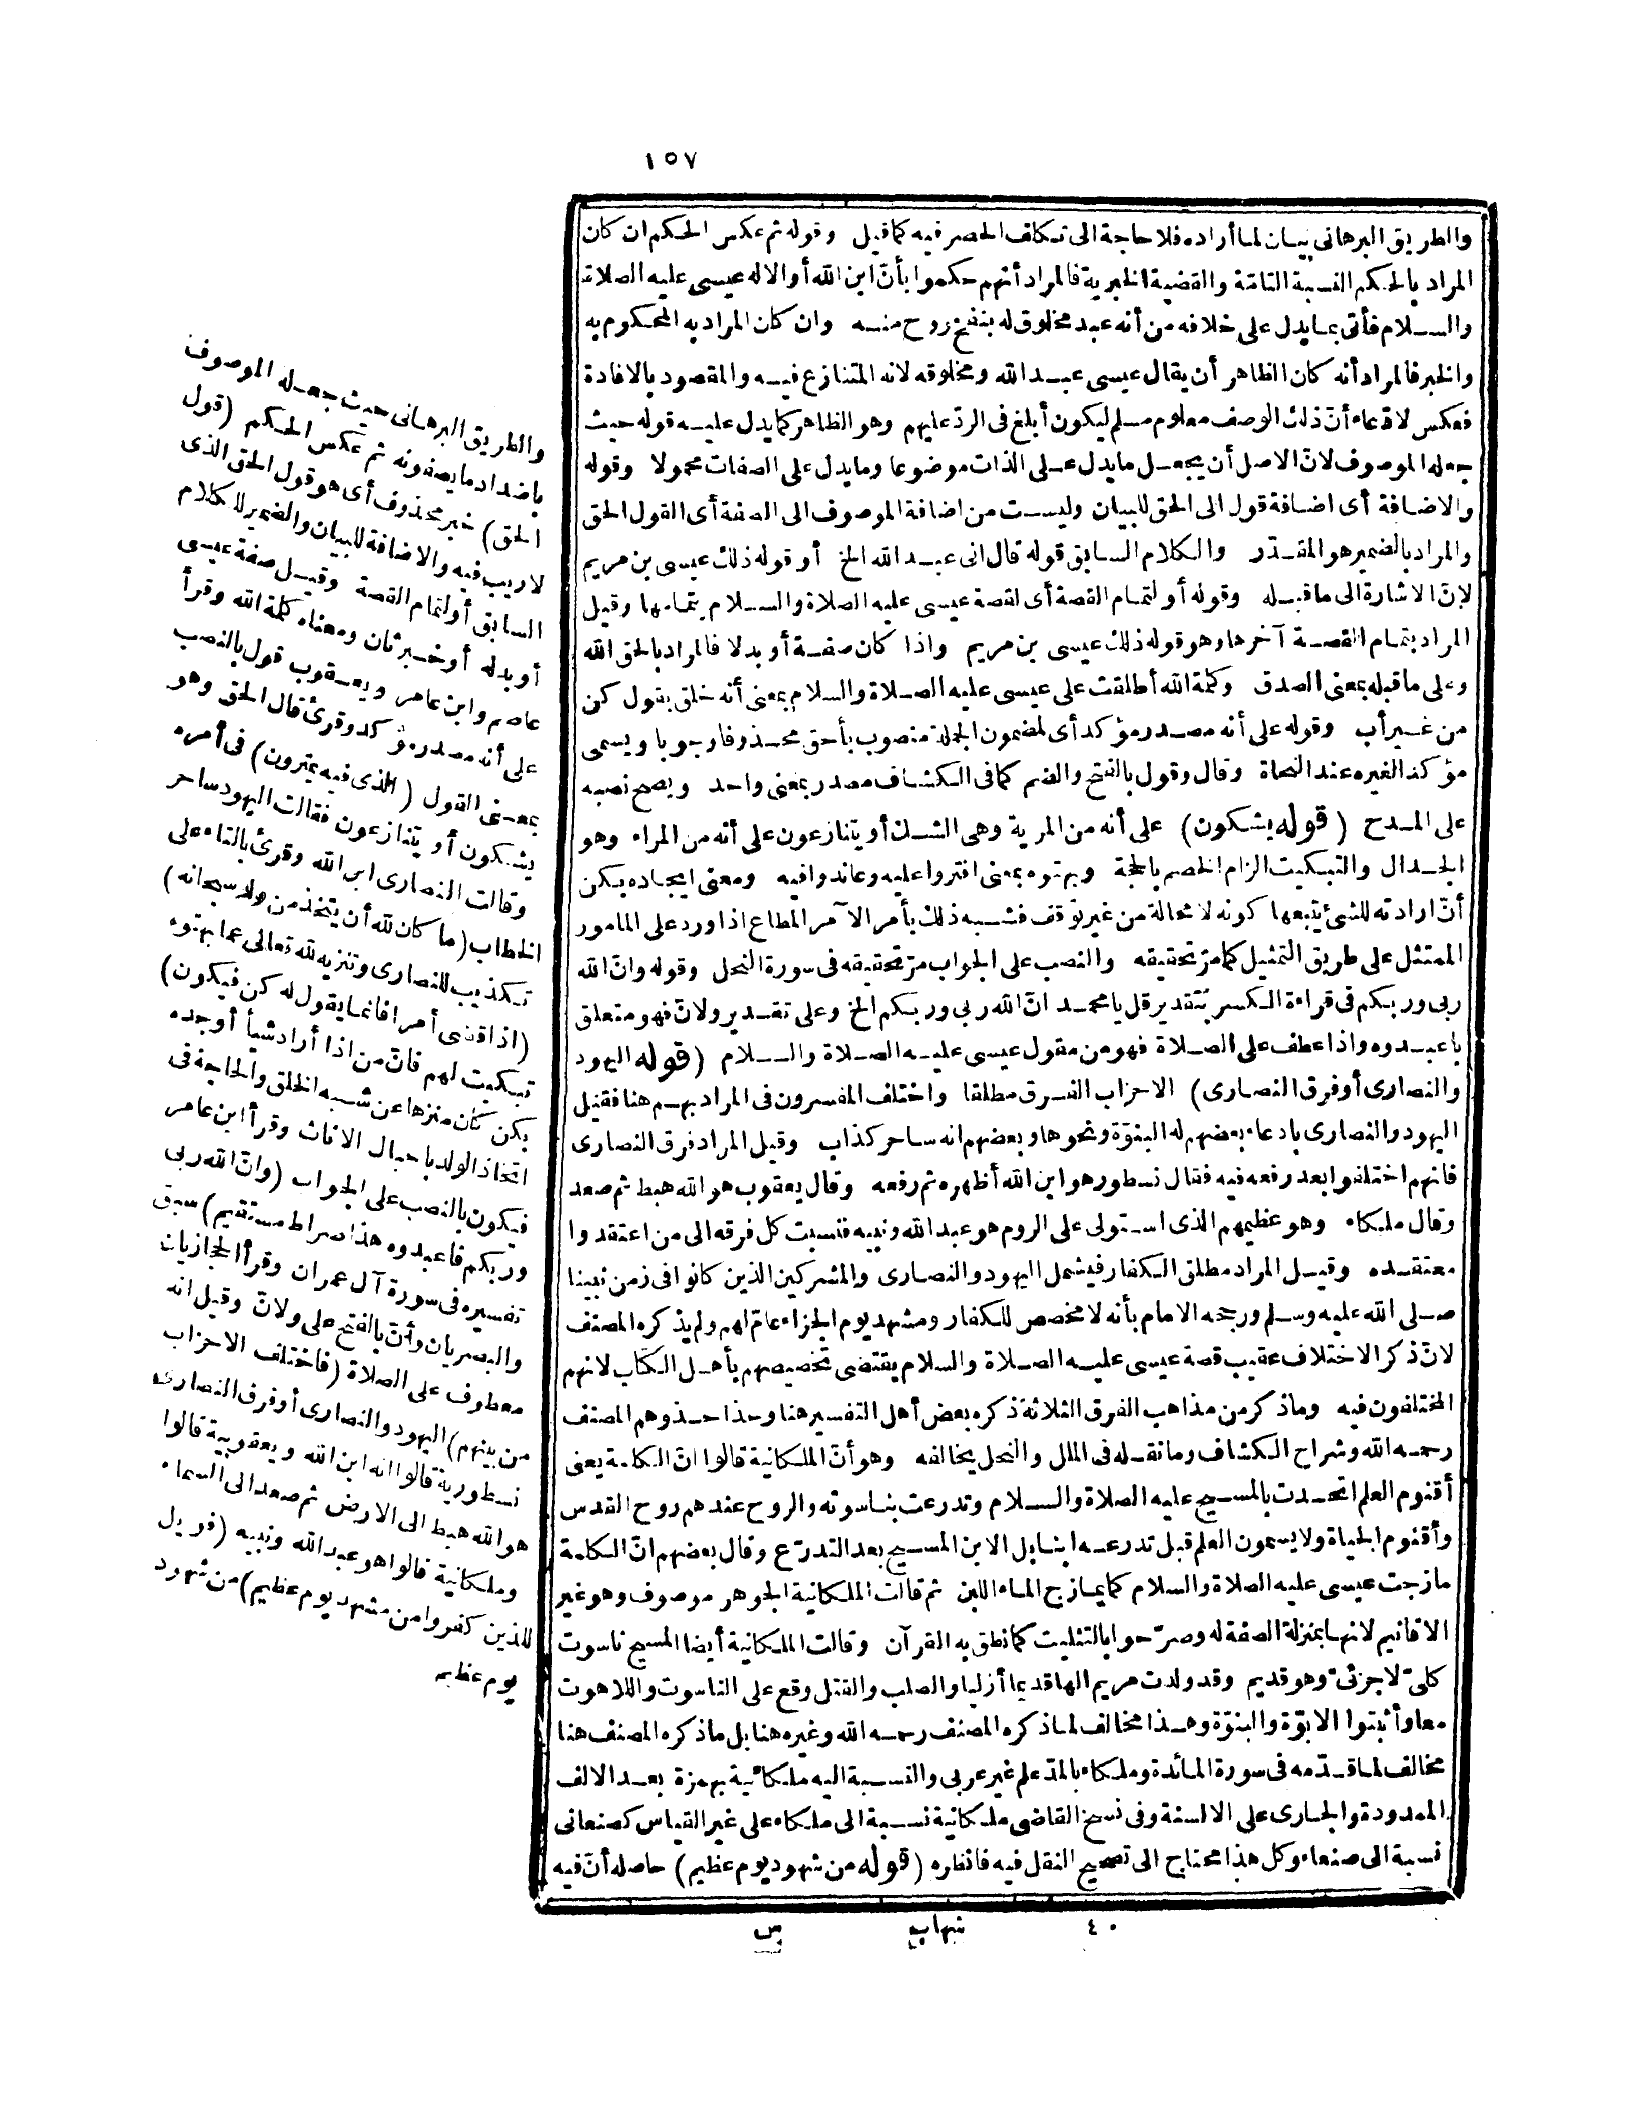 ١٥٧
والطريق البرهانى بيان لما أراده فلا حاجة الى تكلف الحصر فيه كما قيل وقوله ثم عكس الحكم ان كان
المراد بالحكم النسبة التامّة والقضية الخبرية فالمراد أنهم حكموا بأنّ ابن الله أو الاله عيسى عليه الصلاة
والسلام فأتى بما يدل على خلافه من أنه عبد مخلوق له بنفخ روح منه وان كان المراد به المحكوم به
والخبر فالمراد أنه كان الظاهر أن يقال عيسى عبد الله ومخلوقه لانه المتنازع فيه والمقصود بالافادة
فعكس لادّعاء أنّ ذلك الوصف معلوم مسلم ليكون أبلغ فى الردّ عليهم وهو الظاهر كما يدل عليه قوله حيث
جعله الموصوف لانّ الاصل أن يجعل ما يدل على الذات موضوعا وما يدل على الصفات محمولا وقوله
والاضافة أى اضافة قول الى الحق للبيان وليست من اضافة الموصوف الى الصفة أى القول الحق
والمراد بالضمير هو المقدّر والكلام السابق قوله قال انى عبد الله الخ أو قوله ذلك عيسى بن مريم
لانّ الاشارة الى ما قبله وقوله أو لتمام القصة أى لقصة عيسى عليه الصلاة والسلام بتمامها وقيل
المراد بتمام القصة آخرها وهو قوله ذلك عيسى بن مريم واذا كان صفة أو بدلا فالمراد بالحق الله
وعلى ما قبله بمعنى الصدق وكلمة الله أطلقت على عيسى عليه الصلاة والسلام بمعنى أنه خلق بقول كن
من غير أب وقوله على أنه مصدر مؤكد أى لمضمون الجملة منصوب بأحق محذوفا وجوبا ويسمى
مؤكدا لغيره عند النحاة وقال وقول بالفتح والضم كما فى الكشاف مصدر بمعنى واحد ويصح نصبه
على المدح (قوله يشكون) على أنه من المرية وهى الشك أو يتنازعون على أنه من المراء وهو
الجدال والتبكيت الزام الخصم بالحجة وبهتوه بمعنى افتروا عليه وعاندوا فيه ومعنى ايجاده بكن
أنّ ارادته للشئ يتبعها كونه لا محالة من غير توقف فشبه ذلك بأمر الآمر المطاع اذا ورد على المامور
الممتثل على طريق التمثيل كما مرّ تحقيقه والنصب على الجواب مرّ تحقيقه فى سورة النحل وقوله وانّ الله
ربى وربكم فى قراءة الكسر بتقدير قل يا محمد انّ الله ربى وربكم الخ وعلى تقدير ولانّ فهو متعلق
باعبدوه واذا عطف على الصلاة فهو من مقول عيسى عليه الصلاة والسلام (قوله اليهود
والنصارى أو فرق النصارى) الاحزاب الفرق مطلقا واختلف المفسرون فى المراد بهم هنا فقيل
اليهود والنصارى بادعاء بعضهم له البنوّة ونحوها وبعضهم انه ساحر كذاب وقيل المراد فرق النصارى
فانهم اختلفوا بعد رفعه فيه فقال نسطور هو ابن الله أظهره ثم رفعه وقال يعقوب هو الله هبط ثم صعد
وقال ملكاء وهو عظيمهم الذى استولى على الروم هو عبد الله ونبيه فنسبت كل فرقه الى من اعتقدوا
معتقده وقيل المراد مطلق الكفار فيشمل اليهود والنصارى والمشركين الذين كانوا فى زمن نبينا
صلى الله عليه وسلم ورجحه الامام بأنه لا مخصص للكفار ومشهد يوم الجزاء عام لهم ولم يذكره المصنف
لانّ ذكر الاختلاف عقيب قصة عيسى عليه الصلاة والسلام يقتضى تخصيصهم بأهل الكتاب لانهم
المختلفون فيه وما ذكر من مذاهب الفرق الثلاثة ذكره بعض أهل التفسير هنا وحذا حذوهم المصنف
رحمه الله وشراح الكشاف وما نقله فى الملل والنحل يخالفه وهو أنّ الملكانية قالوا انّ الكلمة يعنى
أقنوم العلم اتحدت بالمسيح عليه الصلاة والسلام وتدرعت بناسوته والروح عندهم روح القدس
وأقنوم الحياة ولا يسمون العلم قبل تدرعه ابنا بل الابن المسيح بعد التدرّع وقال بعضهم انّ الكلمة
مازجت عيسى عليه الصلاة والسلام كما يمازج الماء اللبن ثم قالت الملكانية الجوهر موصوف وهو غير
الاقانيم لانها بمنزلة الصفة له وصرّحوا بالتثليث كما نطق به القرآن وقالت الملكانية أيضا المسيح ناسوت
كلىّ لا جزئىّ وهو قديم وقد ولدت مريم الها قديما أزليا والصلب والقتل وقع على الناسوت واللاهوت
معا وأثبتوا الابوّة والبنوّة وهذا مخالف لما ذكره المصنف رحمه الله وغيره هنا بل ما ذكره المصنف هنا
مخالف لما قدّمه فى سورة المائدة وملكاء بالمدّ علم غير عربى والنسبة اليه ملكائية بهمزة بعد الالف
الممدودة والجارى على الالسنة وفى نسخ القاضى ملكانية نسبة الى ملكاء على غير القياس كصنعانى
نسبة الى صنعاء وكل هذا محتاج الى تصحيح النقل فيه فانظره (قوله من شهود يوم عظيم) حاصله أنّ فيه
والطريق البرهانى حيث جعله الموصوف
باضداد ما يصفونه ثم عكس الحكم (قول
الحق) خبر محذوف أى هو قول الحق الذى
لا ريب فيه والاضافة للبيان والضمير للكلام
السابق أو لتمام القصة وقيل صفة عيسى
أو بدله أو خبر ثان ومعناه كلمة الله وقرأ
عاصم وابن عامر ويعقوب قول بالنصب
على أنه مصدر مؤكد وقرئ قال الحق وهو
بمعنى القول (الذى فيه يمترون) فى أمره
يشكون أو يتنازعون فقالت اليهود ساحر
وقالت النصارى ابن الله وقرئ بالتاء على
الخطاب (ما كان لله أن يتخذ من ولد سبحانه)
تكذيب للنصارى وتنزيه لله تعالى عما بهتوه
(اذا قضى أمرا فانما يقول له كن فيكون)
تبكيت لهم فانّ من اذا أراد شيأ أوجده
بكن كان منزها عن شبه الخلق والحاجة فى
اتخاذ الولد باحبال الاناث وقرأ ابن عامر
فيكون بالنصب على الجواب (وانّ الله ربى
وربكم فاعبدوه هذا صراط مستقيم) سبق
تفسيره فى سورة آل عمران وقرأ الحجازيان
والبصريان وأنّ بالفتح على ولانّ وقيل انه
معطوف على الصلاة (فاختلف الاحزاب
من بينهم) اليهود والنصارى أو فرق النصارى
نسطورية قالوا انه ابن الله ويعقوبية قالوا
هو الله هبط الى الارض ثم صعد الى السماء
وملكانية قالوا هو عبد الله ونبيه (فويل
للذين كفروا من مشهد يوم عظيم) من شهود
يوم عظيم
٤٠ شهاب س